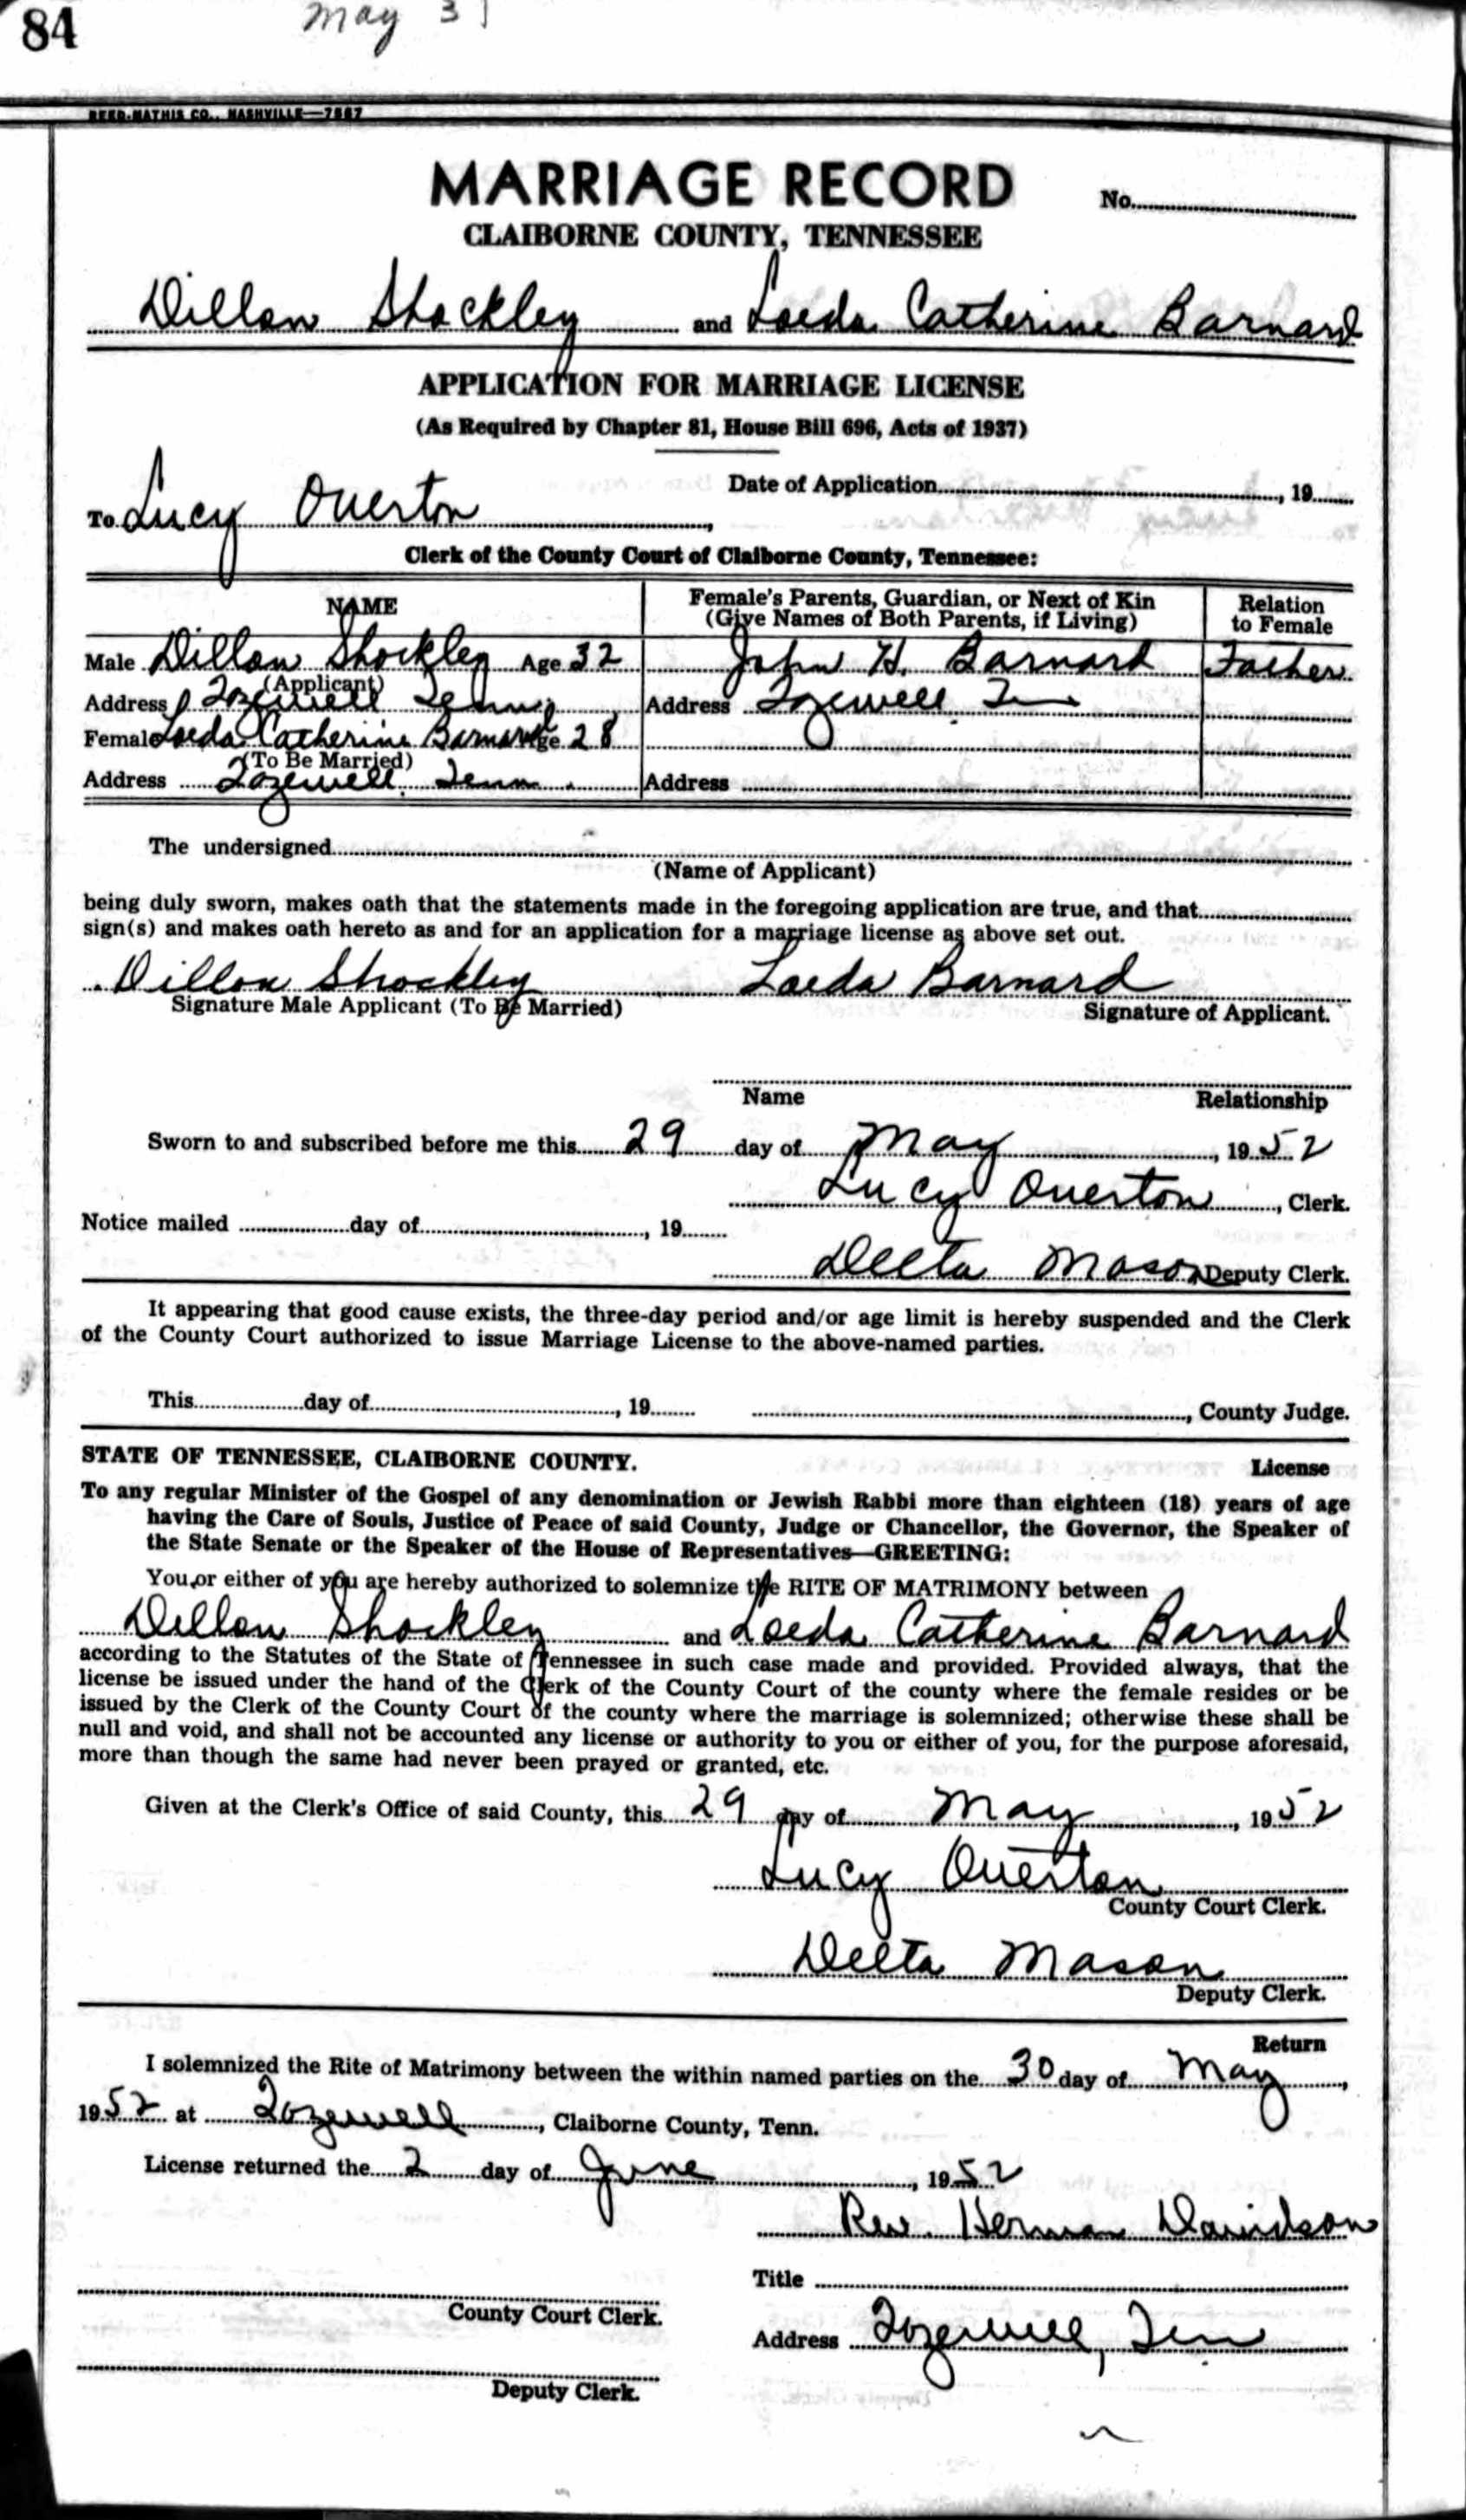 84
May 31
REED-MATHIS CO., NASHVILLE—7567
MARRIAGE RECORD
No.
CLAIBORNE COUNTY, TENNESSEE
Dillon Shockley and Loeda Catherine Barnard
APPLICATION FOR MARRIAGE LICENSE
(As Required by Chapter 81, House Bill 696, Acts of 1937)
Date of Application , 19
To Lucy Overton ,
Clerk of the County Court of Claiborne County, Tennessee:
NAME
Female's Parents, Guardian, or Next of Kin
(Give Names of Both Parents, if Living)
Relation
to Female
Male Dillon Shockley Age 32 John H. Barnard Father
(Applicant)
Address Tazewell Tenn Address Tazewell Tn
Female Loeda Catherine Barnard Age 28
(To Be Married)
Address Tazewell, Tenn. Address
The undersigned
(Name of Applicant)
being duly sworn, makes oath that the statements made in the foregoing application are true, and that
sign(s) and makes oath hereto as and for an application for a marriage license as above set out.
Dillon Shockley Loeda Barnard
Signature Male Applicant (To Be Married) Signature of Applicant.
Name Relationship
Sworn to and subscribed before me this 29 day of May , 1952
Lucy Overton , Clerk.
Notice mailed day of , 19
Delta Mason Deputy Clerk.
It appearing that good cause exists, the three-day period and/or age limit is hereby suspended and the Clerk
of the County Court authorized to issue Marriage License to the above-named parties.
This day of , 19 , County Judge.
STATE OF TENNESSEE, CLAIBORNE COUNTY. License
To any regular Minister of the Gospel of any denomination or Jewish Rabbi more than eighteen (18) years of age
having the Care of Souls, Justice of Peace of said County, Judge or Chancellor, the Governor, the Speaker of
the State Senate or the Speaker of the House of Representatives—GREETING:
You, or either of you are hereby authorized to solemnize the RITE OF MATRIMONY between
Dillon Shockley and Loeda Catherine Barnard
according to the Statutes of the State of Tennessee in such case made and provided. Provided always, that the
license be issued under the hand of the Clerk of the County Court of the county where the female resides or be
issued by the Clerk of the County Court of the county where the marriage is solemnized; otherwise these shall be
null and void, and shall not be accounted any license or authority to you or either of you, for the purpose aforesaid,
more than though the same had never been prayed or granted, etc.
Given at the Clerk's Office of said County, this 29 day of May , 1952
Lucy Overton
County Court Clerk.
Delta Mason
Deputy Clerk.
Return
I solemnized the Rite of Matrimony between the within named parties on the 30 day of May ,
1952 at Tazewell , Claiborne County, Tenn.
License returned the 2 day of June , 1952
Rev. Herman Davidson
Title
County Court Clerk.
Address Tazewell, Tn
Deputy Clerk.